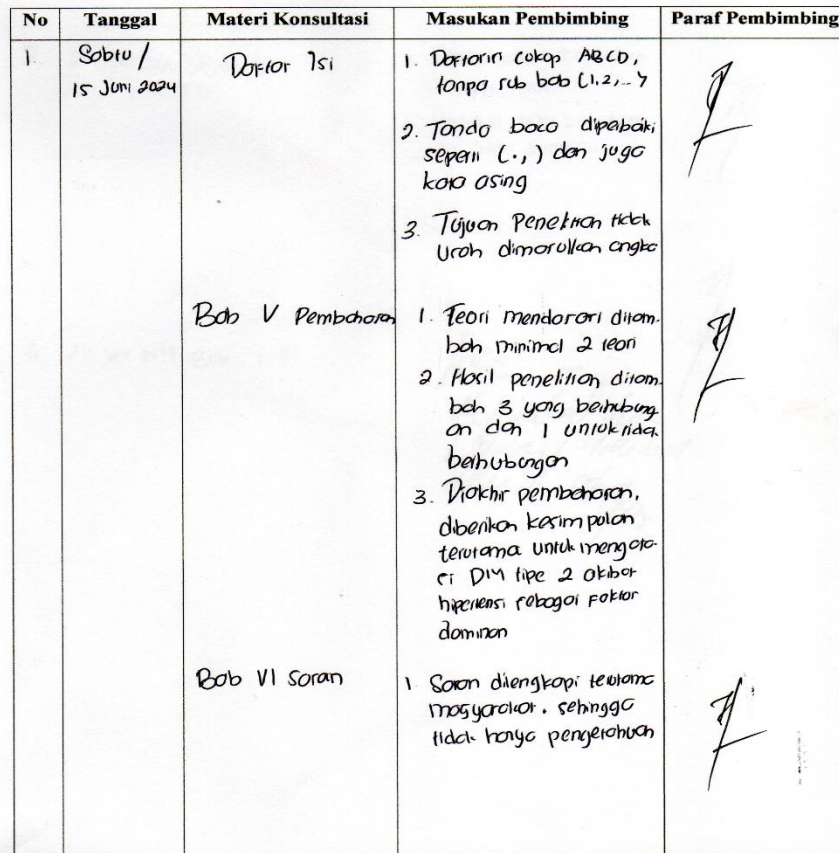 No Tanggal Materi Konsultasi Masukan Pembimbing Paraf Pembimbing
1. Sabtu / 15 Juni 2024
Daftar Isi
1. Daftarisi cukup ABCD,
tanpa sub bab (1,2,..)
2. Tanda baca diperbaiki
seperti (.,) dan juga
kata asing
3. Tujuan Penelitian tidak
usah dimasukkan angka
Bab V Pembahasan
1. Teori mendasari ditam-
bah minimal 2 teori
2. Hasil penelitian ditam-
bah 3 yang berhubung
an dan 1 untuk tidak
berhubungan
3. Diakhir pembahasan,
diberikan kesimpulan
terutama untuk mengata-
si DM tipe 2 akibat
hipertensi sebagai faktor
dominan
Bab VI Saran
1. Saran dilengkapi terutama
masyarakat, sehingga
tidak hanya pengetahuan